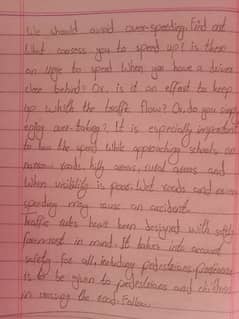 We should avoid over-speeding. Find out
what causes you to speed up? is there
an urge to speed when you have a driver
close behind? Or, is it an effort to keep
up with the traffic flow? Or do you simply
enjoy over-taking? It is especially important
to low the speed while approaching schools on
narrow roads, hilly areas, rural areas and
When visibility is poor. Wet roads and over
speeding may cause an accident.
Traffic rules have been designed with safety
foremost in mind. It takes into account
safety for all, including pedestrians, preference
is to be given to pedestrians and children
in crossing the road. Follow